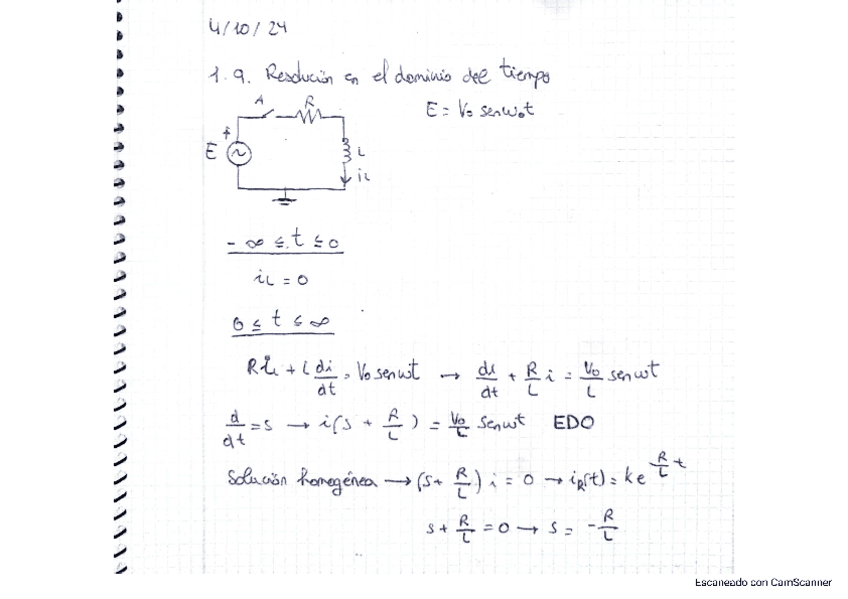 4/10/24
1.9. Resolución en el dominio del tiempo
E = V₀ senω₀t
A R
+
E
L
iL
- ∞ ≤ t ≤ 0
iL = 0
0 ≤ t ≤ ∞
RiL + L di/dt = V₀ senωt → di/dt + R/L i = V₀/L senωt
d/dt = s → i(s + R/L) = V₀/L senωt EDO
Solución homogénea → (s + R/L) i = 0 → iR(t) = k e^(R/L t)
s + R/L = 0 → s = -R/L
Escaneado con CamScanner